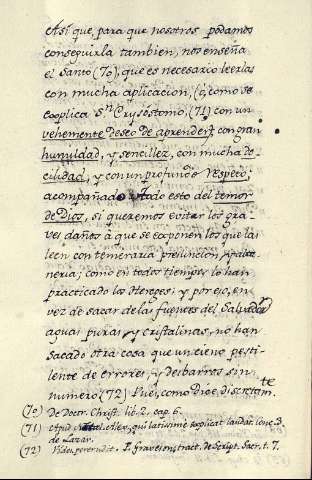 Así que, para que nosotros podamos
conseguirla tambien, nos enseña
el Santo (70), que es necesario leerlas
con mucha aplicacion, (ó, como se
explica Sn. Crysóstomo, (71) con un
vehemente deseo de aprender) con gran
humildad, y sencillez, con mucha do-
cilidad, y con un profundo respeto,
acompañado todo esto del temor
de Dios, si queremos evitar los gra-
ves daños à que se exponen los que las
leen con temeraria presuncion, y
neria; como en todos tiempos lo han
practicado los Hereges; y por eso, en
vez de sacar de las fuentes del Salvador
aguas puras, y cristalinas, no han
sacado otra cosa que un cieno pesti-
lente de errores, y desbarros sin
numero (72) Pues, como Dice discretam.te
(70) De Doctr. Christ. lib. 2, cap. 6.
(71) Apud Natal. Alex, qui latissime explicat laudat. conc. 3.
de Lazar.
(72) Videri poterit P. Graveson, tract. de Script. Sacr. t. 7.